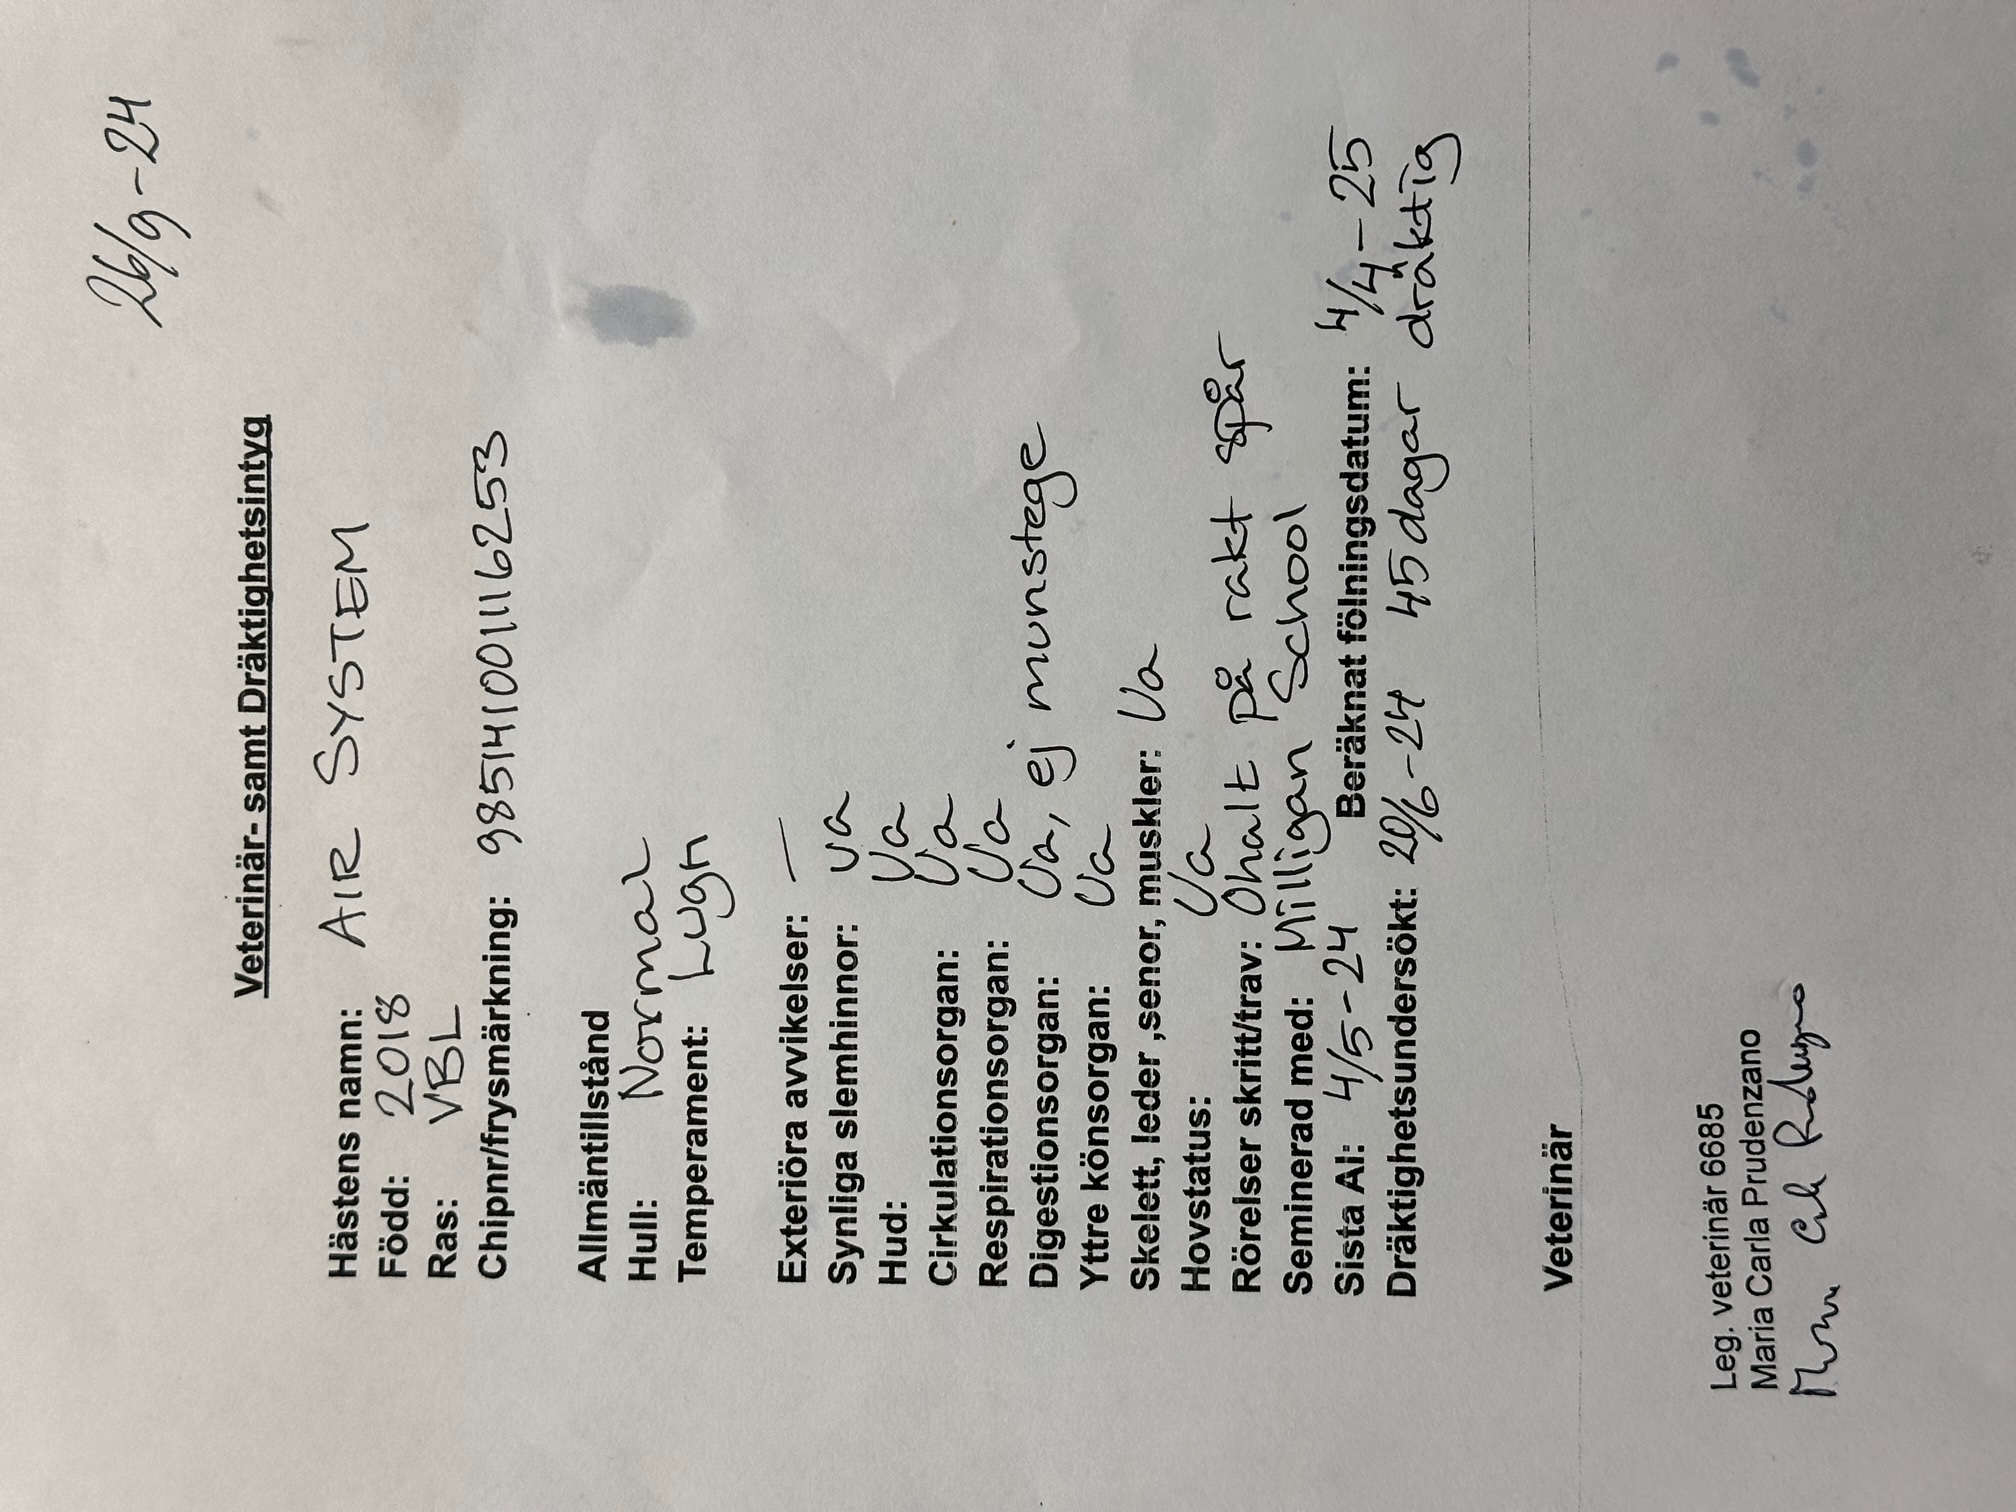 26/9-24
Veterinär- samt Dräktighetsintyg
Hästens namn: AIR SYSTEM
Född: 2018
Ras: VBL
Chipnr/frysmärkning: 985141001116253
Allmäntillstånd
Hull: Normal
Temperament: Lugn
Exteriöra avvikelser: —
Synliga slemhinnor: ua
Hud: Ua
Cirkulationsorgan: Ua
Respirationsorgan: Ua
Digestionsorgan: Ua, ej munstege
Yttre könsorgan: Ua
Skelett, leder ,senor, muskler: Ua
Hovstatus: Ua
Rörelser skritt/trav: Ohalt på rakt spår
Seminerad med: Milligan School
Sista AI: 4/5-24 Beräknat fölningsdatum: 4/4-25
Dräktighetsundersökt: 20/6-24 45 dagar dräktig
Veterinär
Leg. veterinär 6685
Maria Carla Prudenzano